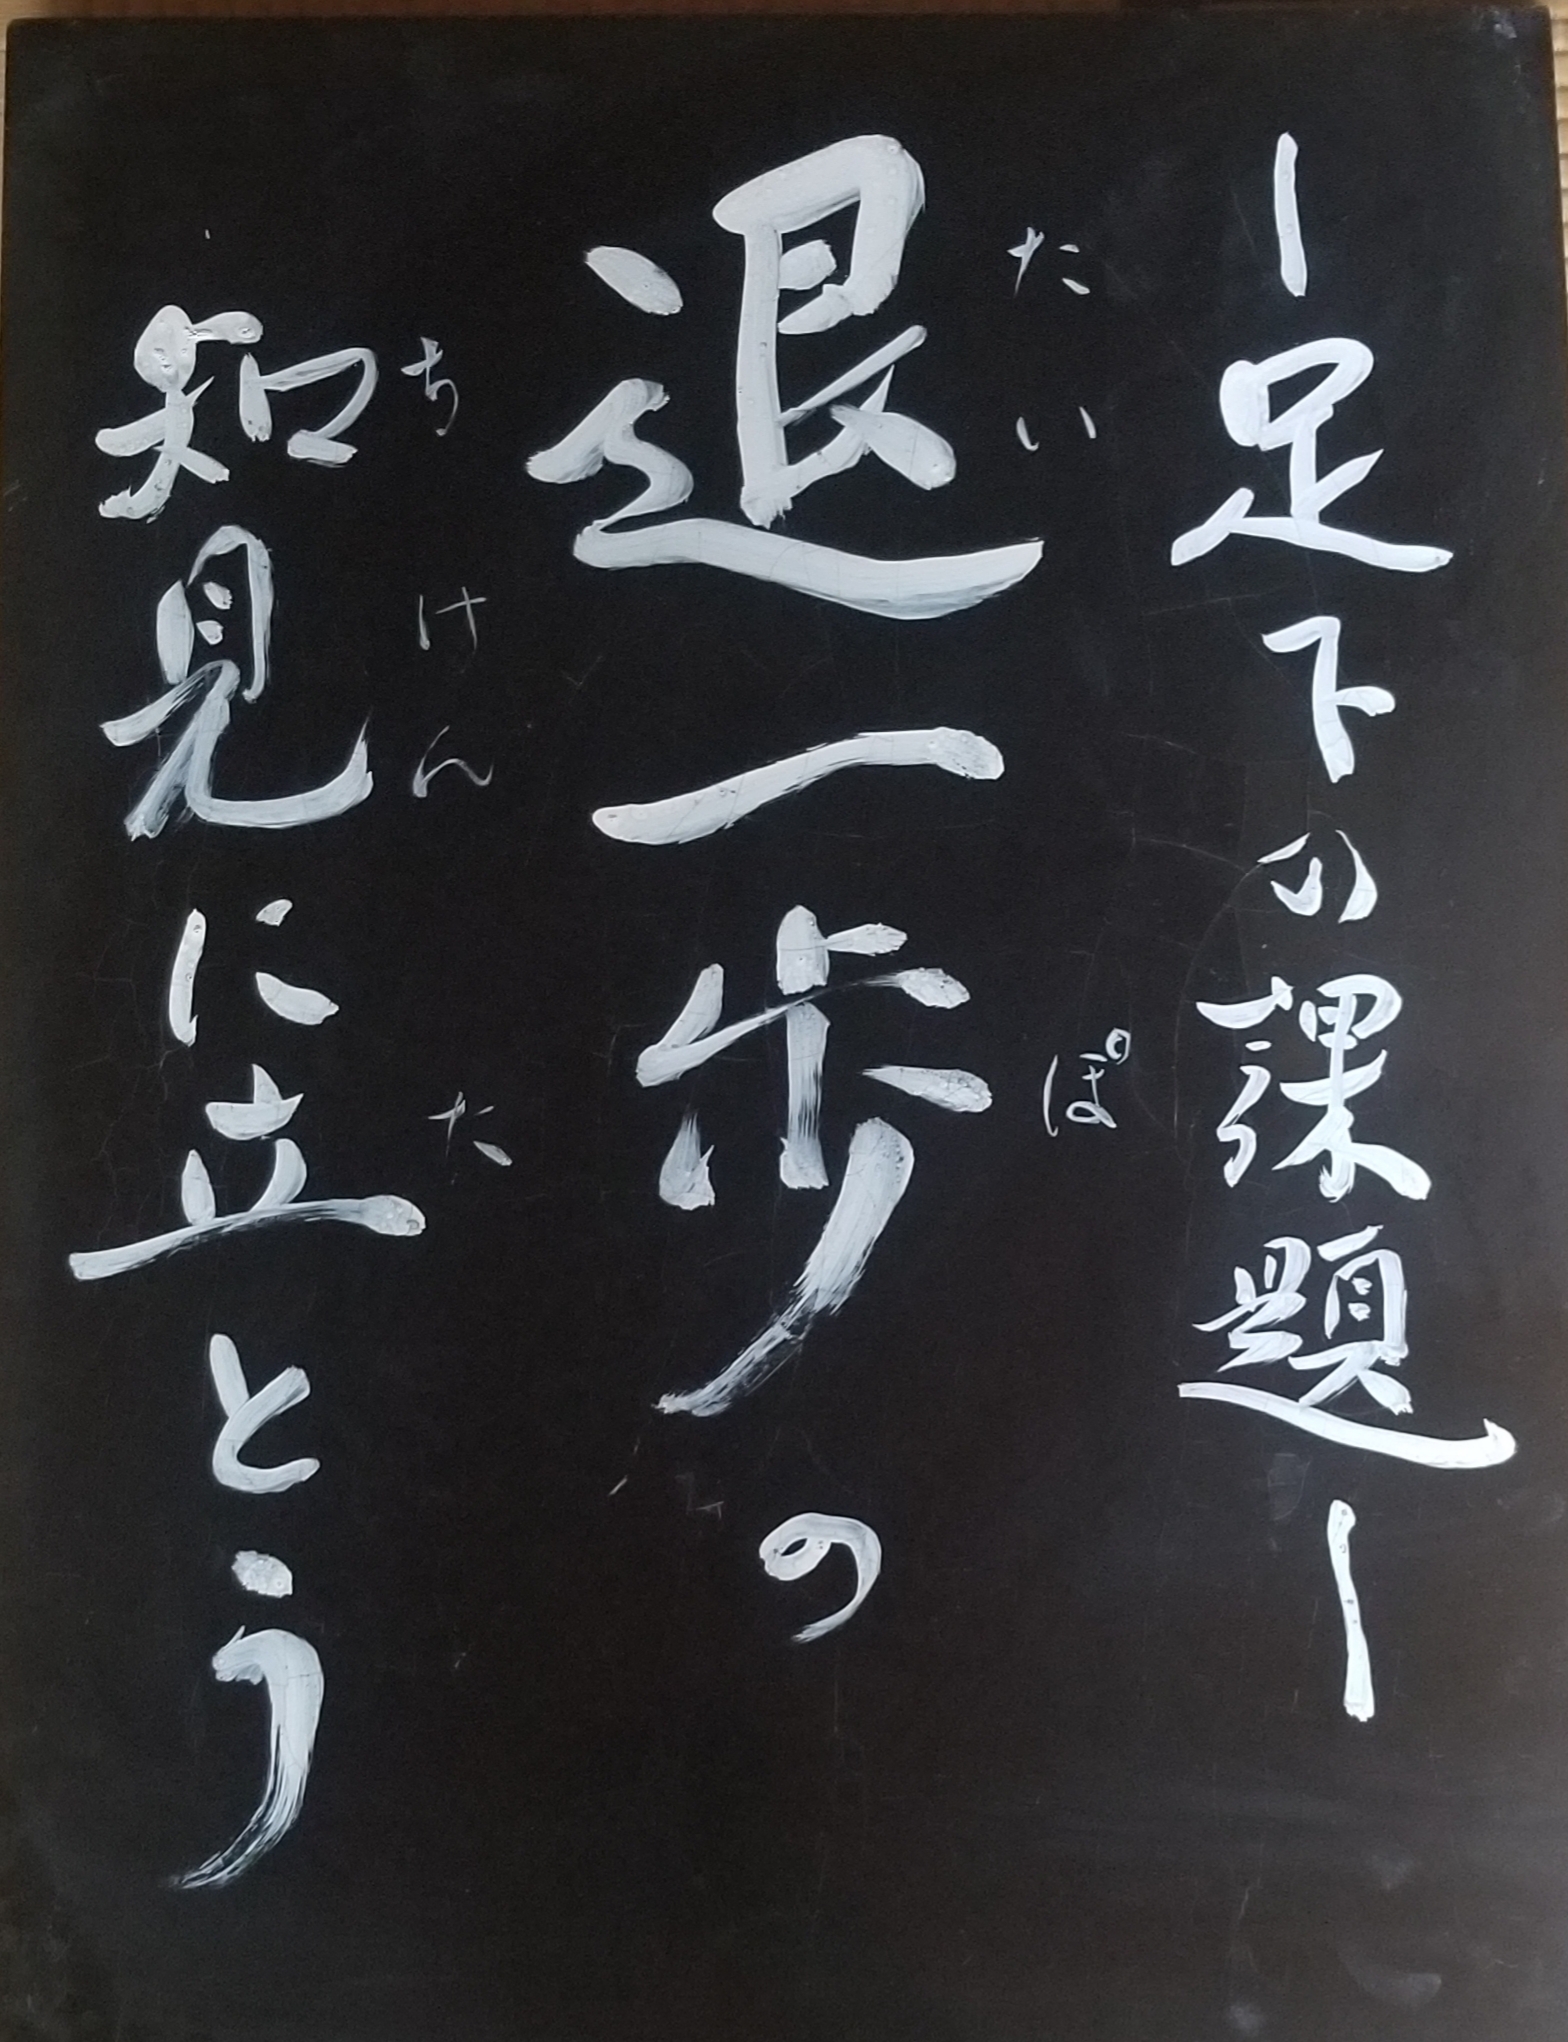 ー足下の課題ー
たい ぽ
退一歩の
ち けん た
知見に立とう